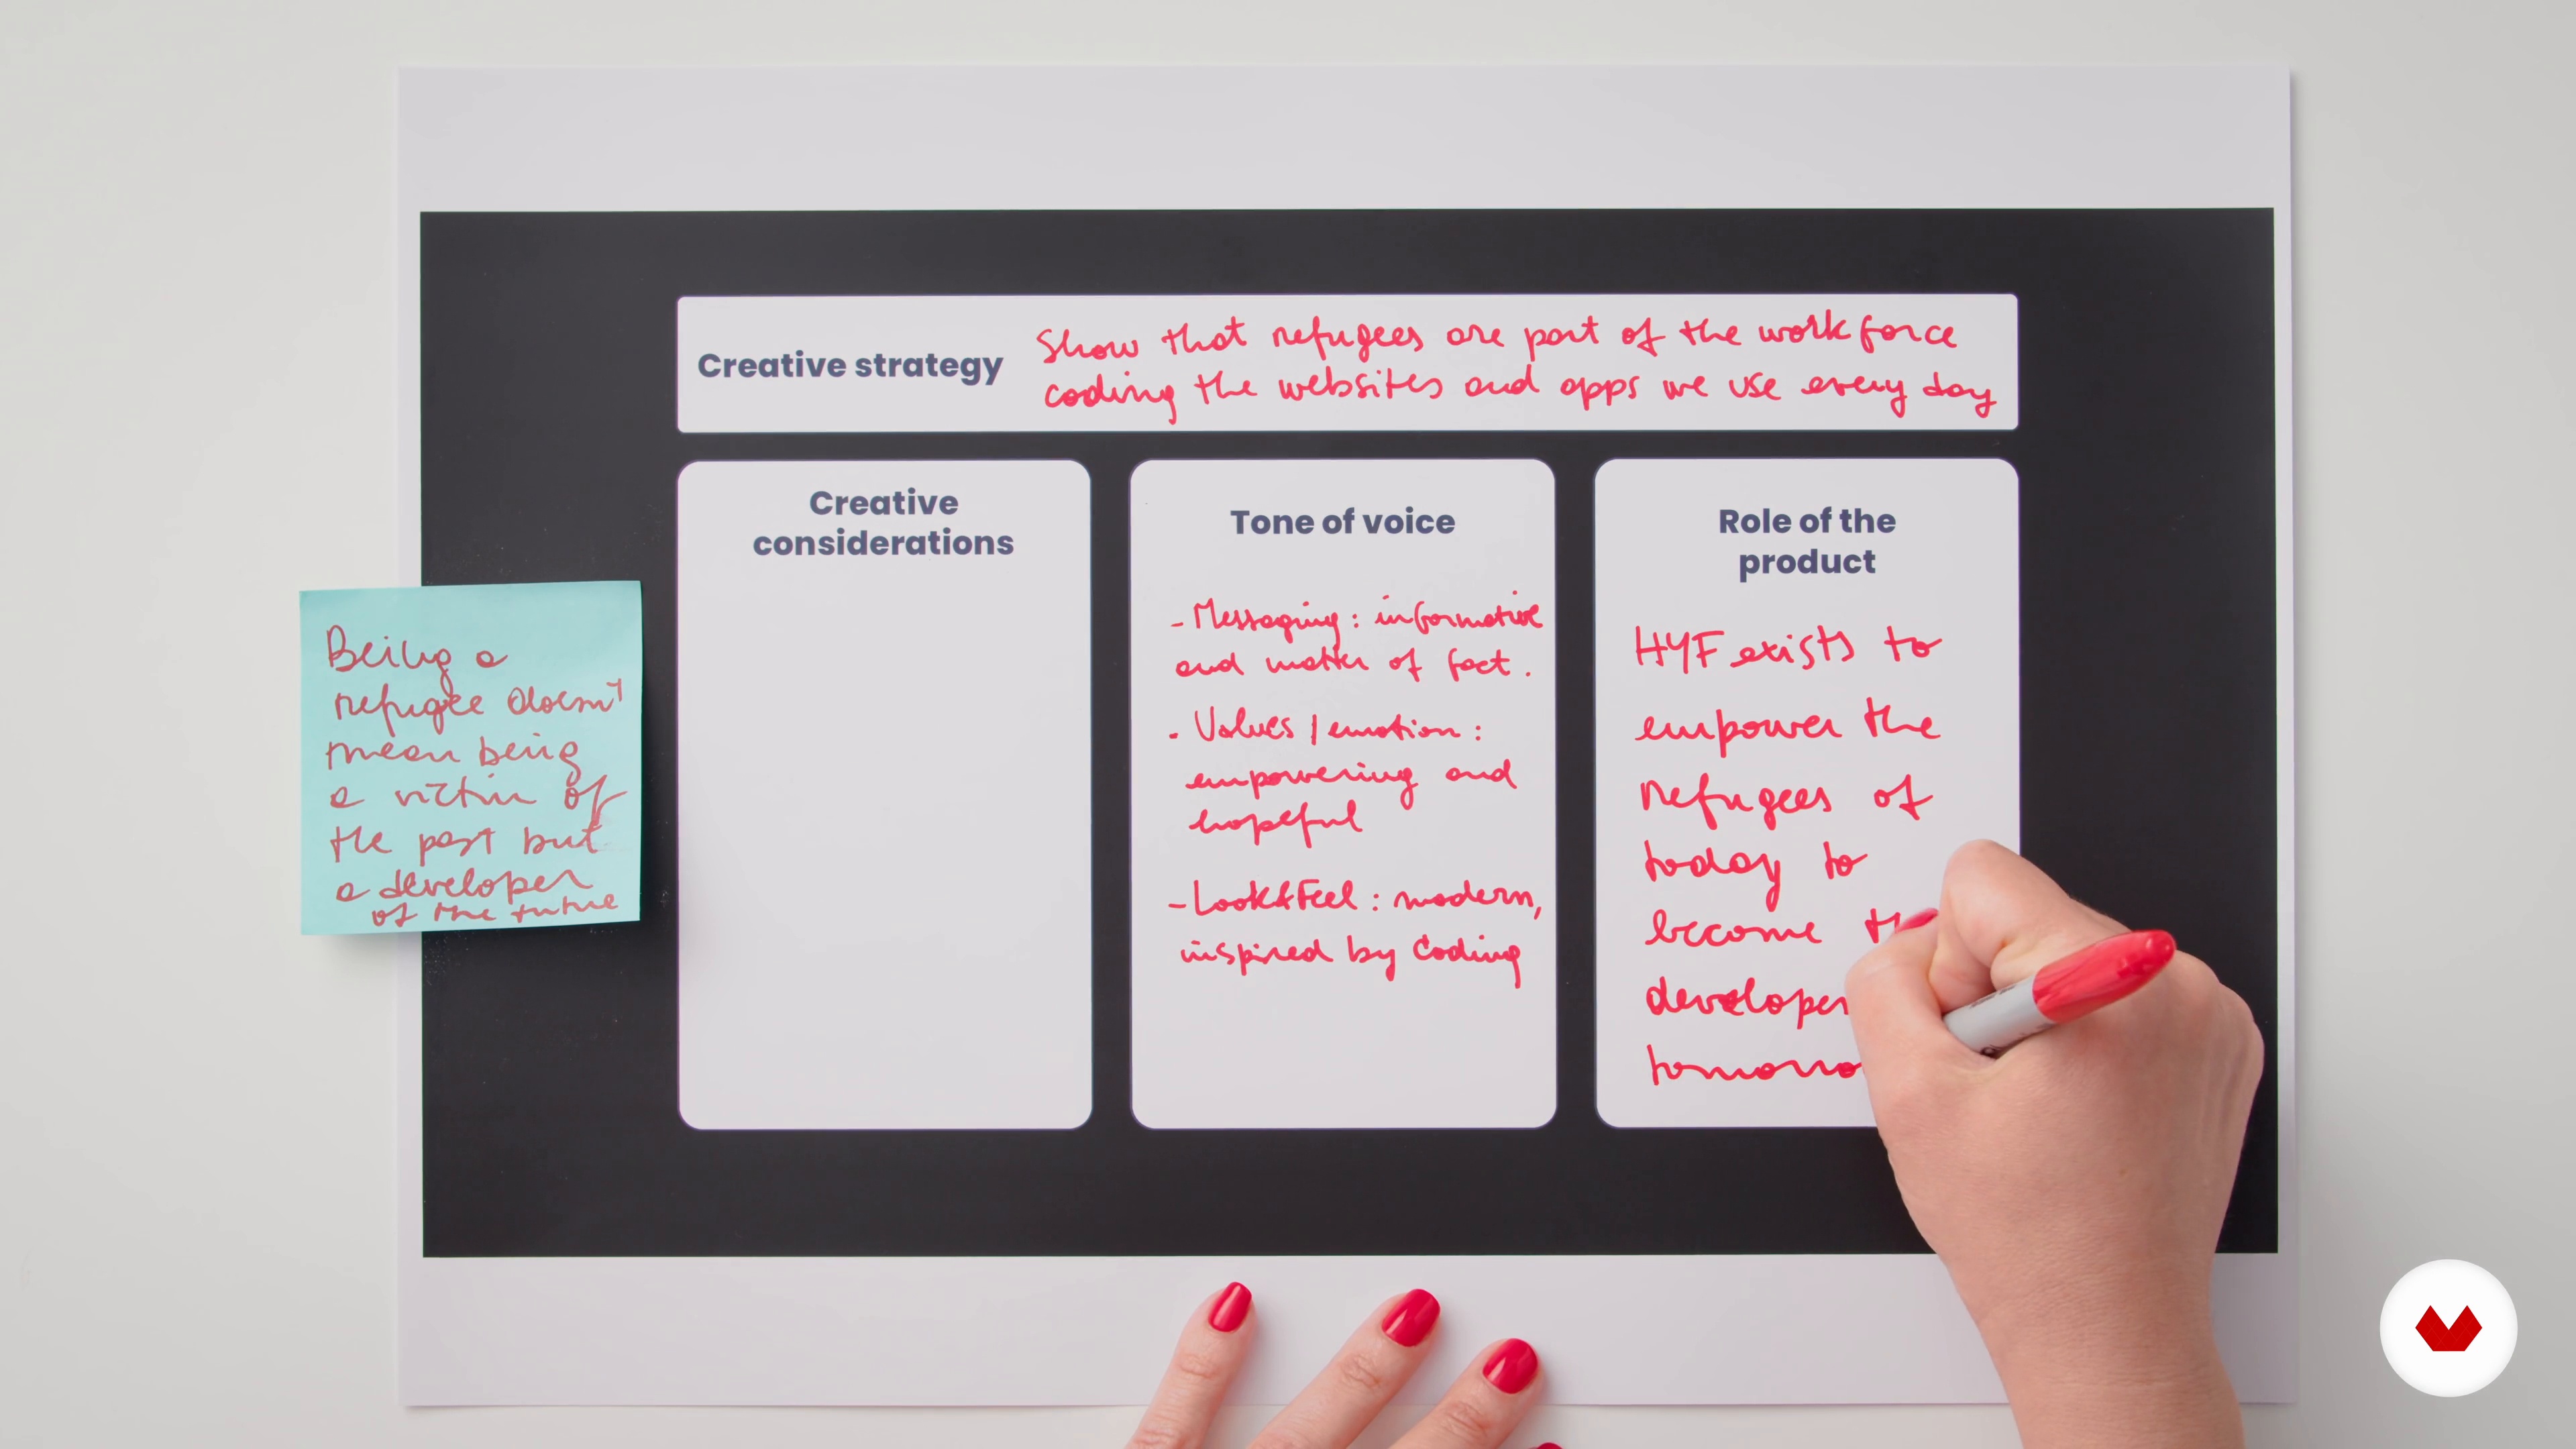 Creative strategy
Show that refugees are part of the workforce
coding the websites and apps we use every day
Being a
refugee doesn't
mean being
a victim of
the past but
a developer
of the future
Creative
considerations
Tone of voice
- Messaging : informative
and matter of fact.
. Values / emotion :
empowering and
hopeful
- Look&Feel : modern,
inspired by coding
Role of the
product
HYF exists to
empower the
refugees of
today to
become th
developer
tomorro